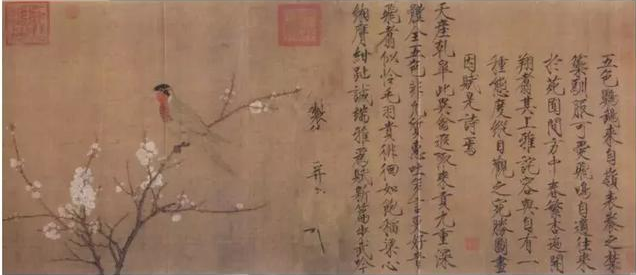 五色鸚鵡來自嶺表養之禁
籞馴服可愛飛鳴自適往來
於苑囿間方中春繁杏遍開
翔翥其上雅詫容與自有一
種態度縱目觀之宛勝圖畫
因賦是詩焉
天産乾皋此異禽遐陬來貢九重深
體全五色非凡質惠吐多言更好音
飛翥似憐毛羽貴徘徊如飽稻粱心
緗膺紺趾誠端雅爲賦新篇步武吟
製 并